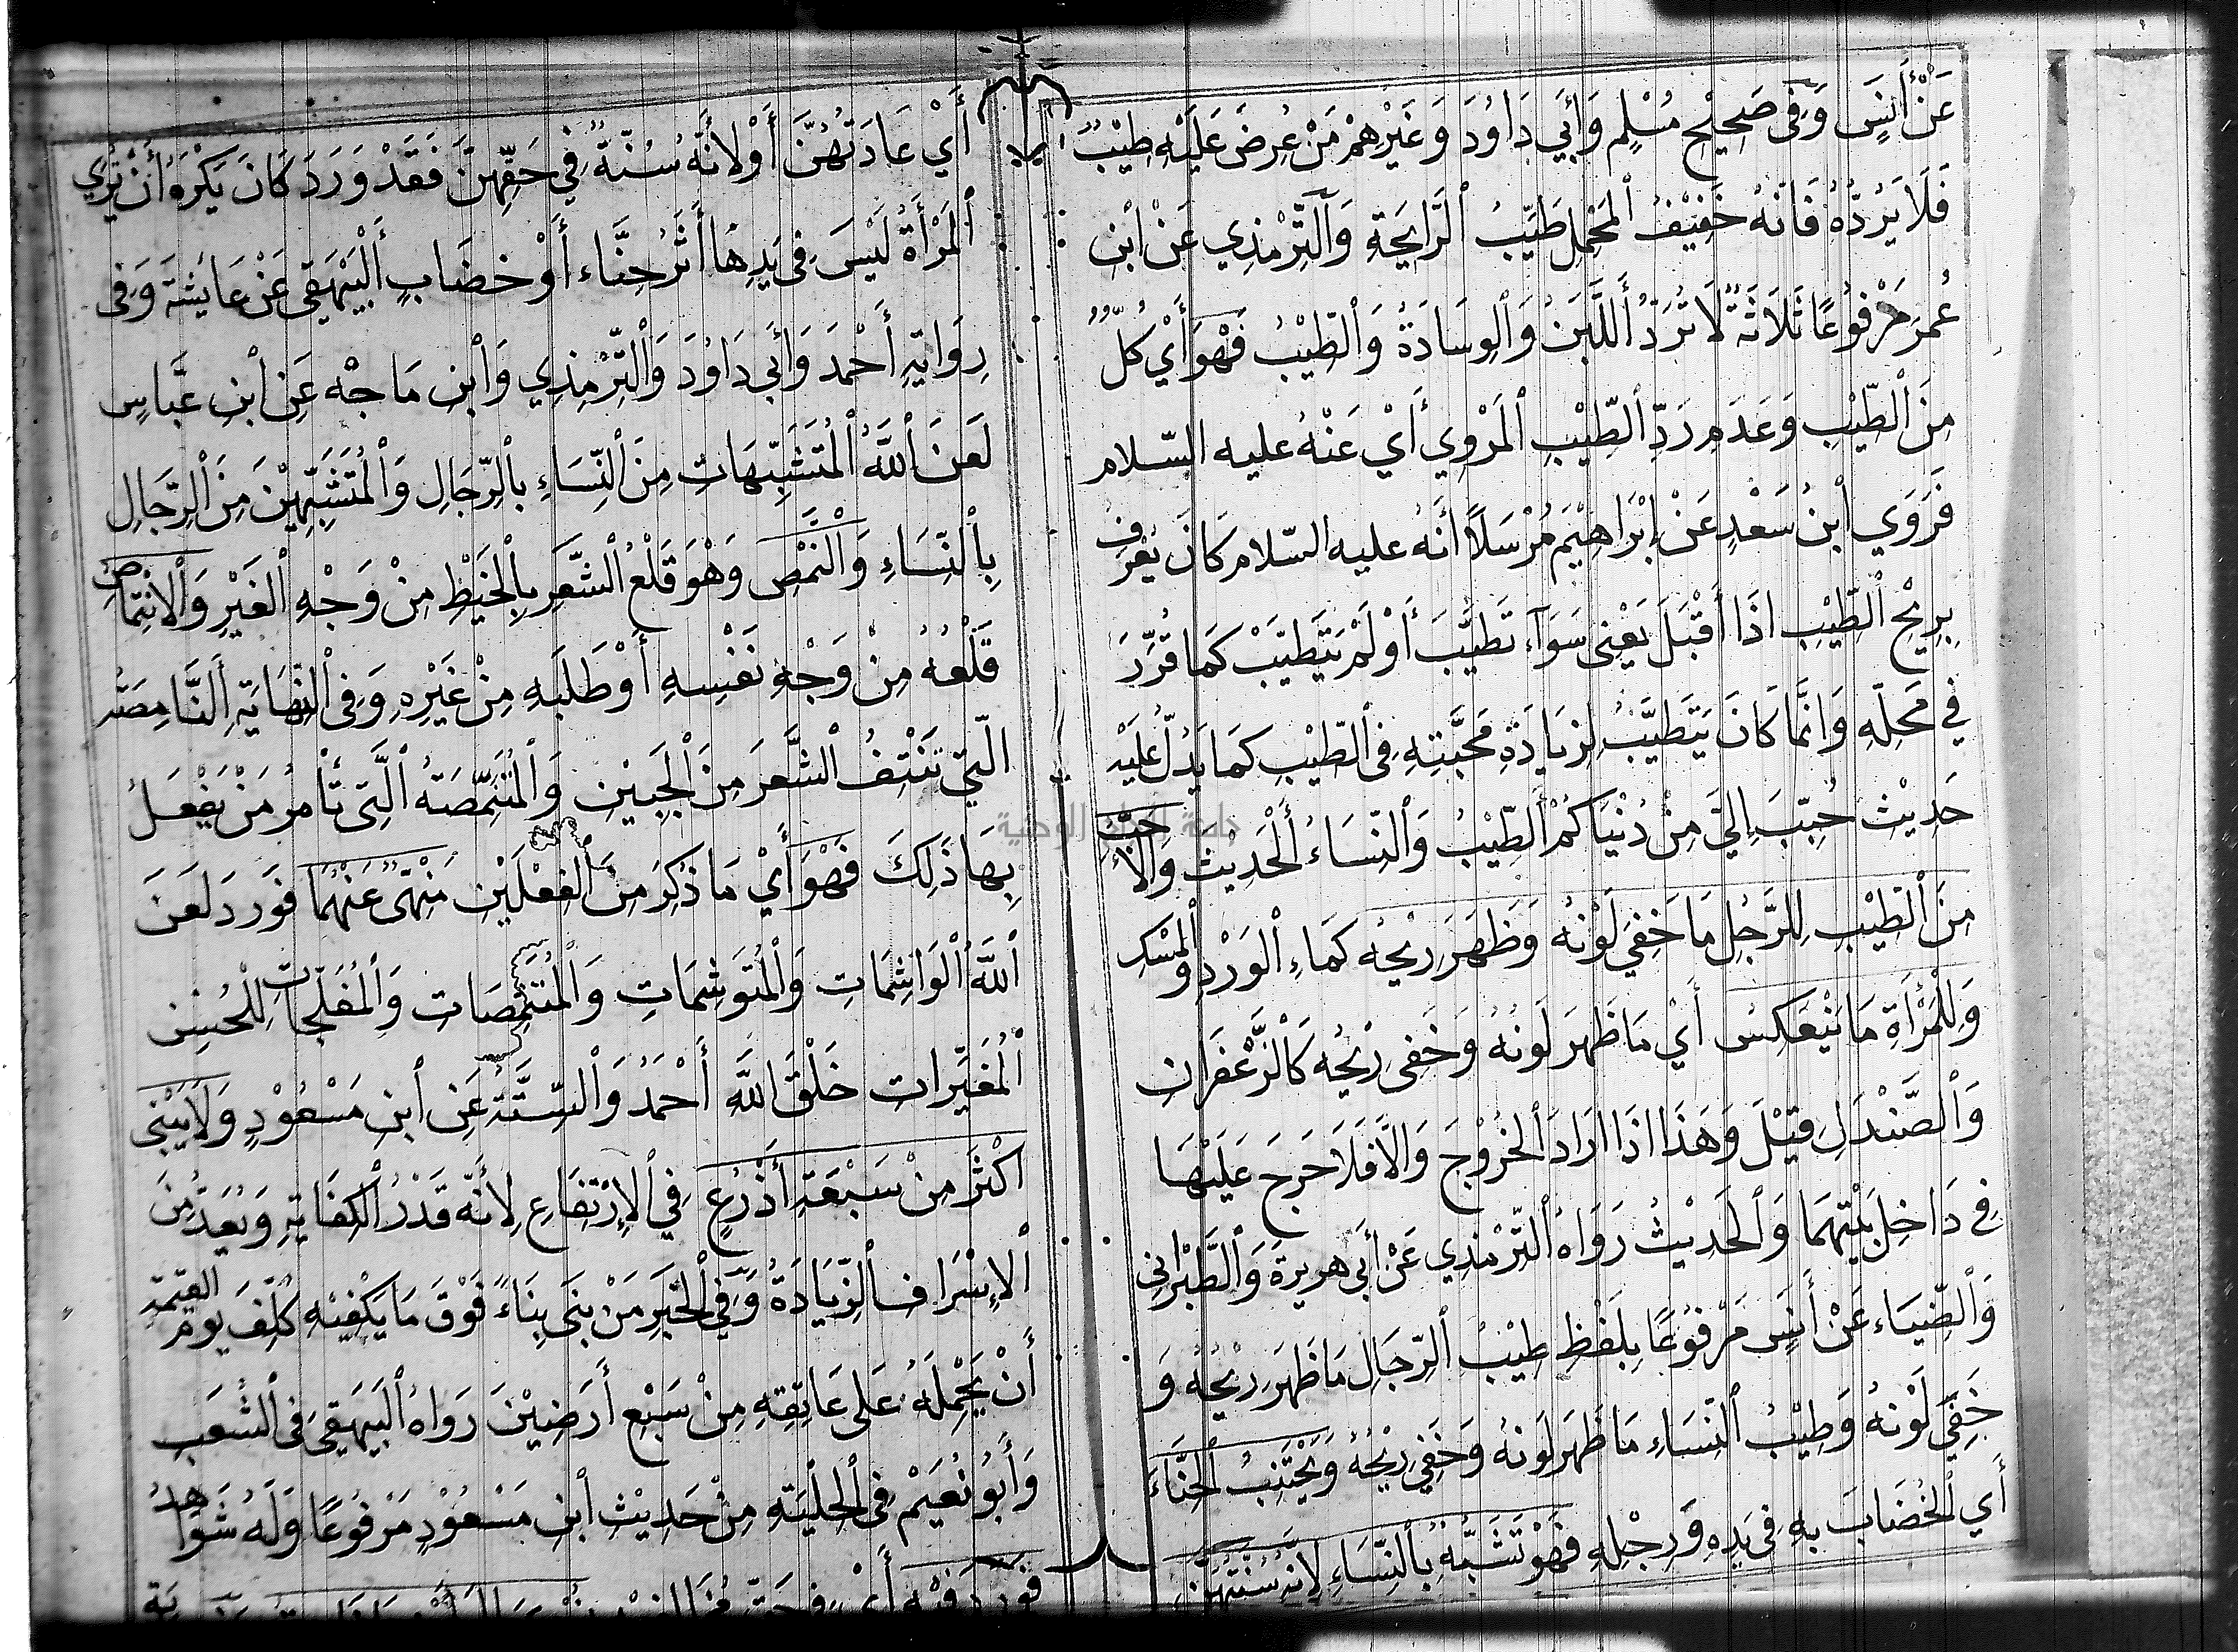 عَنْ أَنَسٍ وَفِى صَحِيْحِ مُسْلِمٍ وَأَبِي دَاوُدَ وَغَيْرِهِمْ مَنْ عُرِضَ عَلَيْهِ طِيْبٌ
فَلَا يَرُدُّهُ فَانَهُ خَفِيْفُ الْمَحْمِلِ طَيِّبُ الرَّايِحَةِ وَالتِّرْمِذِي عَنْ ابْنِ
عُمَرَ مَرْفُوْعًا ثَلَاثَةٌ لَا تُرَدُّ أَللَّبَنُ وَالْوِسَادَةُ وَالطِّيْبُ فَهْوَ أَيْ كُلٌّ
مِنَ الطِّيْبِ وَعَدَمِ رَدِّ الطِّيْبِ الْمَرْوِي أَيْ عَنْهُ عليه السّلام
فَرَوَي ابْنُ سَعْدٍ عَنْ إِبْرَاهِيْمَ مُرْسَلًا أَنَهُ عليه السّلام كَانَ يُعْرَفُ
بِرِيْحِ الطِّيْبِ اذَا أَقْبَلَ يَعْنِى سَوَآء تَطَيَّبَ أَوْ لَمْ يَتَطَيَّبْ كَمَا قُرِّرَ
فِي مَحَلِّهِ وَانَّمَا كَانَ يَتَطَيَّبُ لِزيَادَةِ مَحَبَّتِهِ فِى الطِّيْبِ كَمَا يَدُلُّ عَلَيْهِ
حَدِيْث حُبِّبَ إِلَيَّ مِنْ دُنْيَاكُمْ الطِّيْبُ وَالنِّسَاءُ أَلْحَدِيْث وَالْأَحَبُّ
مِنَ الطِّيْبِ لِلرَّجُلِ مَا خَفِيَ لَوْنُهُ وَظَهَرَ رِيْحُه كَمَاءِ الْوَرْدِ وَالْمِسْكِ
وَلِلْمَرْأَةِ مَا يَنْعَكِسُ أَيْ مَا ظَهَرَ لَونُهُ وَخَفِى رِيْحُه كَالزَّعْفَرَان
وَالصَّنْدَلِ قِيْلَ وَهَذَا اذَا ارَادَ الْخُرُوْجَ وَالَّا فَلَا حَرَجَ عَلَيْهَا
فِى دَاخِلِ بَيْتِهمَا وَالْحَدِيْثُ رَوَاهُ التِّرْمِذي عَنْ أَبِى هريرةَ وَالطَّبْرَانِى
وَالضِّيَاء عَنْ أَنَسٍ مَرْفُوْعًا بِلَفْظِ طِيْبُ الرِّجَالِ مَا ظَهَرَ رِيْحُهُ وَ
خَفِيَ لَوْنهُ وَطِيْبُ النِّسَاءِ مَا ظَهَرَ لَونُهُ وَخَفِيَ رِيْحُهُ وَيَجْتَنِبُ الْحِنَّاءَ
أَي الْخُضَابَ بِهِ فِى يَدِهِ وَرِجْلِهِ فَهْوَ تَشَبُّهٌ بِالنِّسَاءِ لِانَّه سُنَّتُهُنَّ
أَيْ عَادَتُهُنَّ أَوْ لِانَّهُ سُنَّةٌ فِي حَقِّهِنَّ فَقَدْ وَرَدَ كَانَ يَكْرَهُ أَنْ يُرَي
الْمَرْأَةَ لَيْسَ فِى يَدِهَا أَثَرُ حِنَّاء أَوْ خضَابٍ أَلْبَيْهَقِي عَنْ عَايشَةَ وَفِى
رِوَايَةِ أَحْمَدَ وَأَبِي دَاوُدَ وَالتِّرْمِذِي وَابْنِ مَاجْه عَنِ ابْنِ عَبَّاسٍ
لَعَنَ اللَّهُ الْمُتَشَبِّهَاتِ مِنَ النِّسَاءِ بالرِّجَالِ وَالْمُتَشَبِّهِيْنَ مِنَ الرِّجَالِ
بِالنِّسَاءِ وَالنَّمْصِ وَهْوَ قَلْعُ الشَّعَرِ بِالْخَيْطِ مِنْ وَجْهِ الْغَيْرِ وَالْانْتِمَاصِ
قَلْعُهُ مِنْ وَجْهِ نَفْسِهِ أَوْ طَلَبِهِ مِنْ غَيْرِهِ وَفِى النِّهَايَةِ أَلنَّامِصَة
الّتِي تَنْتِفُ الشَّعَرَ مِنَ الْجَبِيْنِ وَالْمُتَنَمِّصَةُ الَّتِى تَأْمرُ مَنْ يَفْعَلُ
بِهَا ذَلِكَ فَهْوَ أَيْ مَا ذُكِرَ مِنَ الْفِعْلَيْنِ مَنْهِىٌّ عَنْهُمَا فَوَردَ لَعَنَ
اللَّهُ الْوَاشِمَاتِ وَالْمُتَوَشِمَاتِ وَالْمُتَنَمِّصَاتِ وَالْمُفَلِّجَاتِ لِلْحُسْنِ
الْمُغَيِّراتِ خَلْقَ اللَّهِ أَحْمَدُ وَالسِّتَّةُ عَنِ ابْنِ مَسْعُوْدٍ وَلَا يَبْنِى
اكْثَرَ مِنْ سَبْعَةِ أَذْرُعٍ فِي الْاِرْتِفَاعِ لِأَنَّه قَدْرُ الْكِفَايَةِ وَيُعَدُّ مِنَ
الْاِسْرَافِ الزِّيَادَةُ وَفِي الْخَبَرِ مَنْ بَنَى بِنَاءً فَوْقَ مَا يَكْفِيْهِ كُلِّفَ يومَ القِيمَةِ
أَنْ يَحْمِلَهُ عَلَى عَاتِقِهِ مِنْ سَبْعِ أَرَضِيْنَ رَوَاهُ الْبَيهَقِيَ فِى الشُّعَبِ
وَأَبُو نُعَيْمْ فِى الْحِلْيَةِ مِنْ حَدِيْثِ ابْنِ مَسْعُوْدٍ مَرْفُوعًا وَلَهُ شَوَاهِدُ